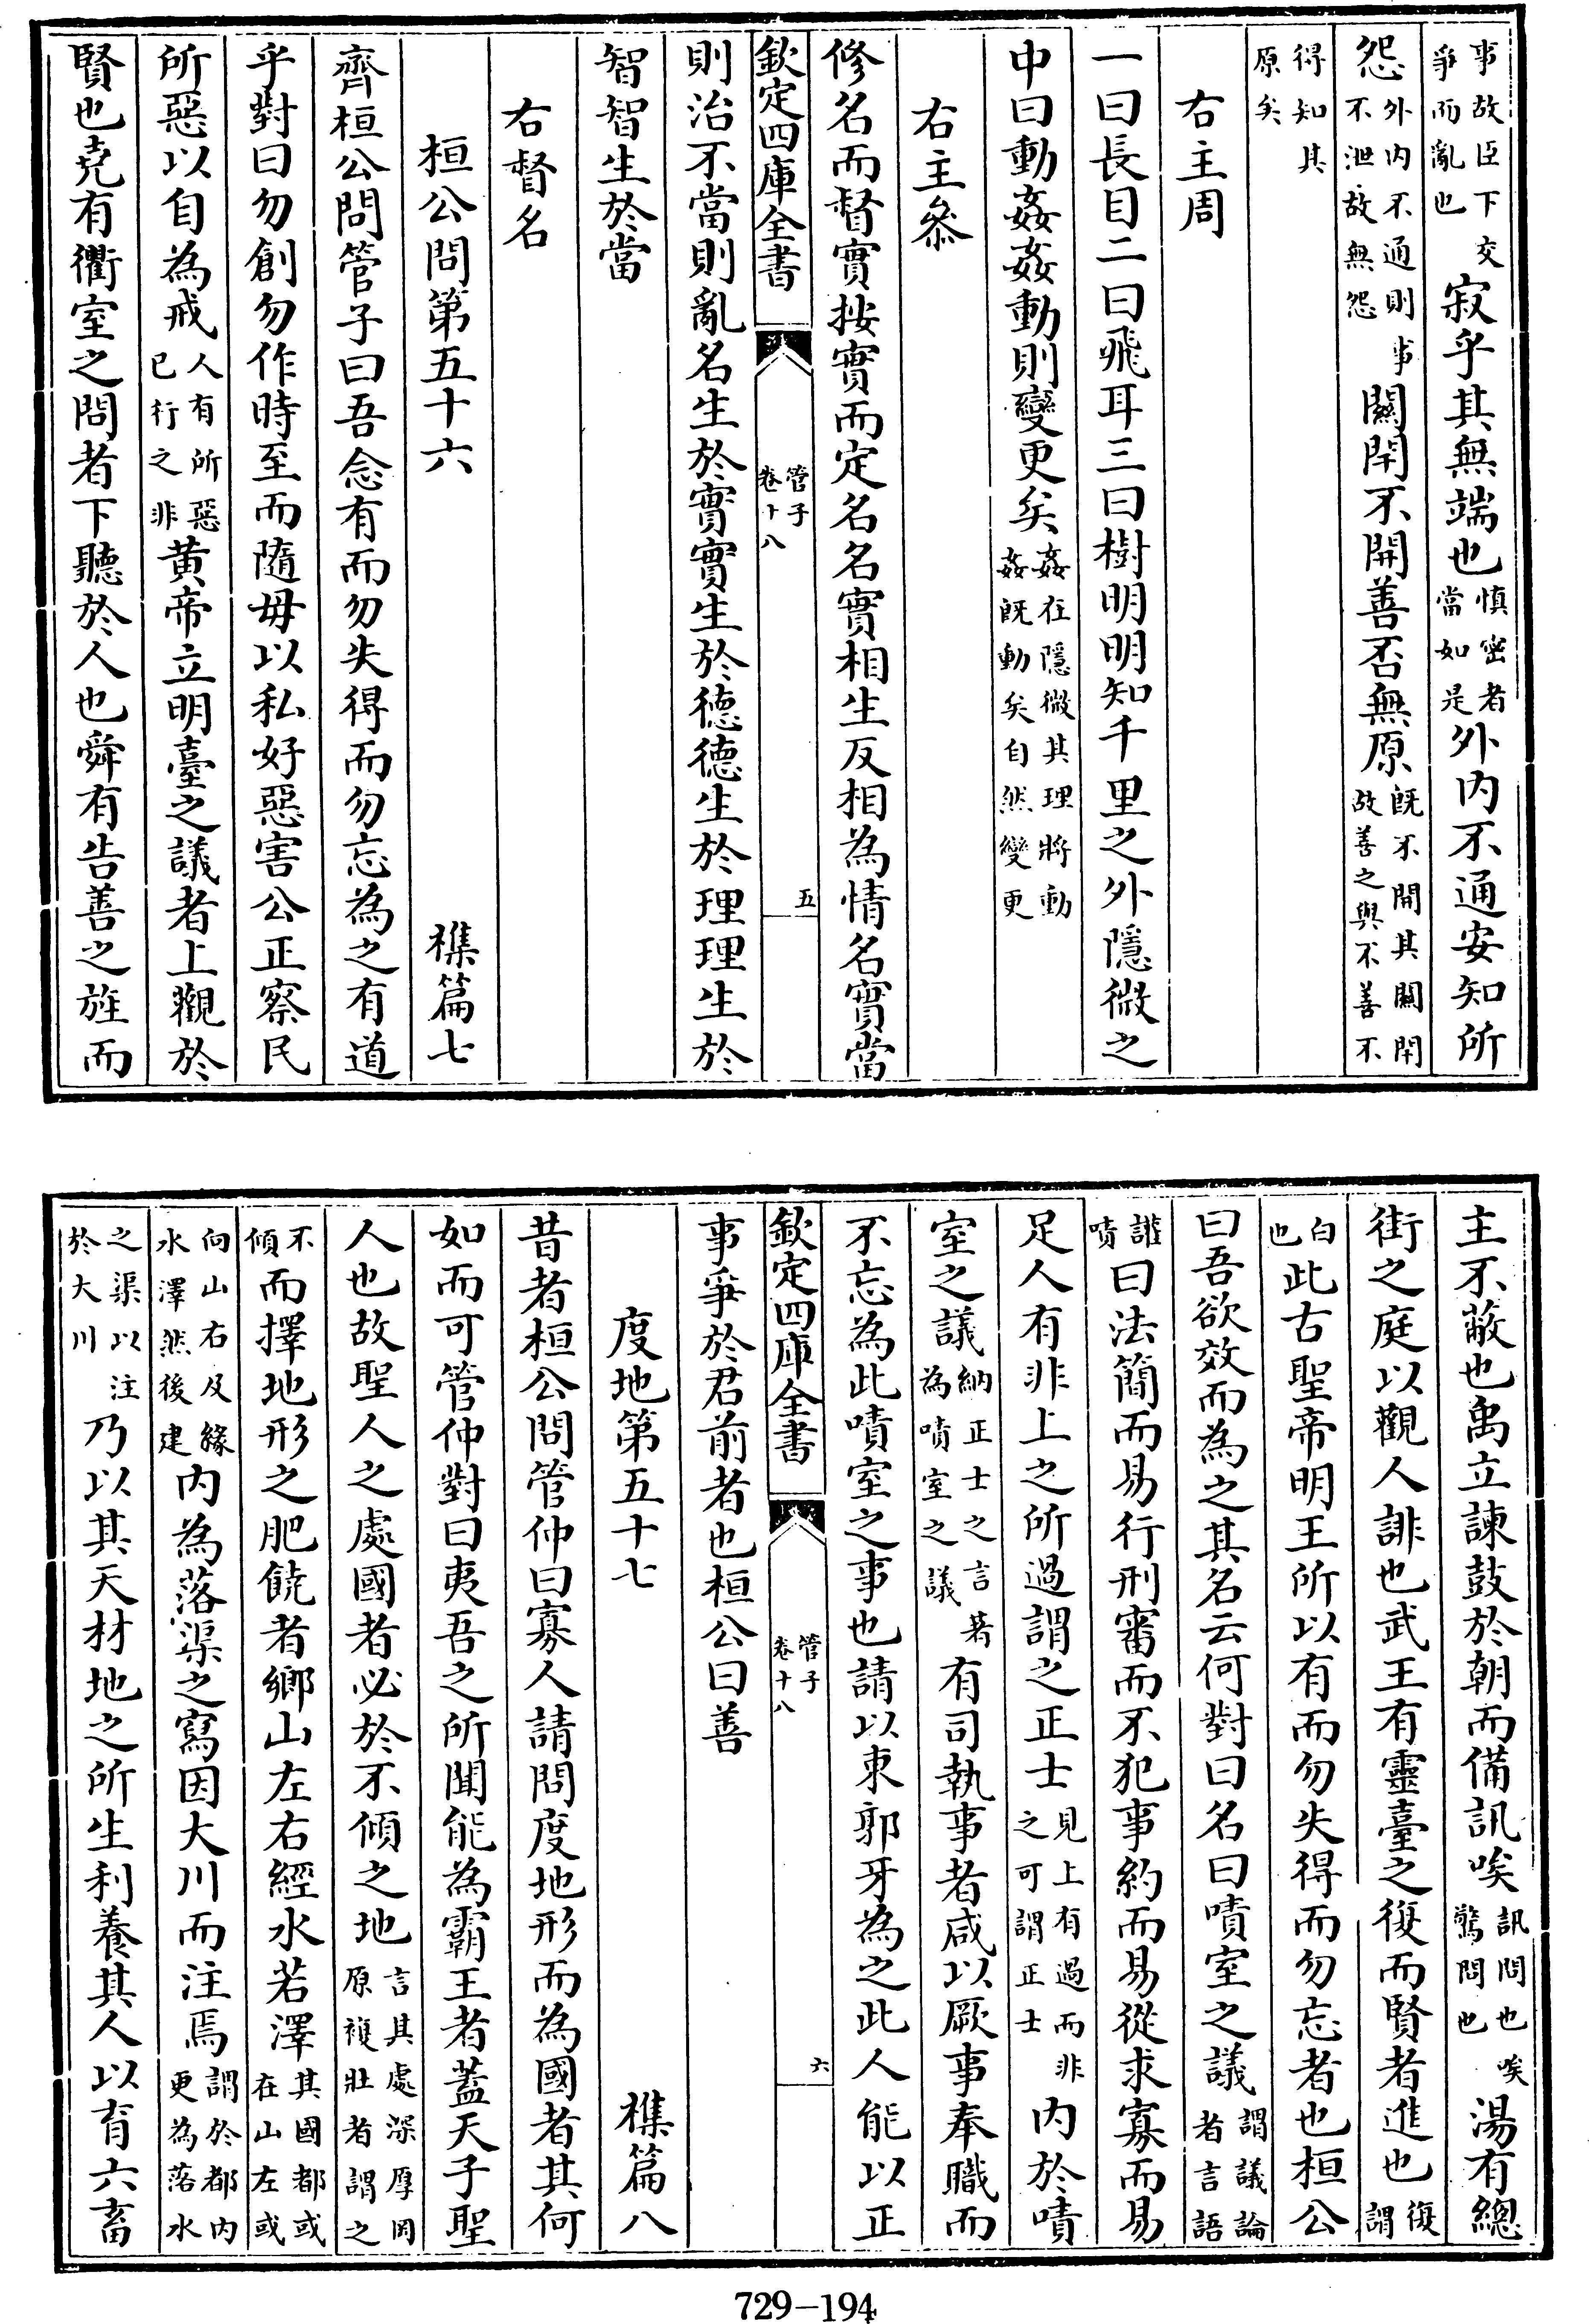 事故臣下交爭而亂也寂乎其無端也慎密者當如是外内不通安知所
怨外内不通則事不泄故無怨闗閈不開善否無原既不開其闗閈故善之與不善不
得知其原矣
右主周
一曰長目二曰飛耳三曰樹明明知千里之外隱微之
中曰動姦姦動則變更矣姦在隱微其理將動姦既動矣自然變更
右主叅
修名而督實按實而定名名實相生反相為情名實當
欽定四庫全書
管子
卷十八
五
則治不當則亂名生於實實生於德德生於理理生於
智智生於當
右督名
桓公問第五十六 襍篇七
齊桓公問管子曰吾念有而勿失得而勿忘為之有道
乎對曰勿創勿作時至而隨毋以私好惡害公正察民
所惡以自為戒人有所惡已行之非黄帝立明臺之議者上觀於
賢也堯有衢室之問者下聽於人也舜有告善之旌而
主不蔽也禹立諫鼓於朝而備訊唉訊問也唉驚問也湯有總
街之庭以觀人誹也武王有靈臺之復而賢者進也復謂
白也此古聖帝明王所以有而勿失得而勿忘者也桓公
曰吾欲效而為之其名云何對曰名曰嘖室之議謂議論者言語
讙嘖曰法簡而易行刑審而不犯事約而易從求寡而易
足人有非上之所過謂之正士見上有過而非之可謂正士内於嘖
室之議納正士之言著為嘖室之議有司執事者咸以厥事奉職而
不忘為此嘖室之事也請以東郭牙為之此人能以正
欽定四庫全書
管子
卷十八
六
事爭於君前者也桓公曰善
度地第五十七 襍篇八
昔者桓公問管仲曰寡人請問度地形而為國者其何
如而可管仲對曰夷吾之所聞能為霸王者蓋天子聖
人也故聖人之處國者必於不傾之地言其處深厚岡原複壯者謂之
不傾而擇地形之肥饒者鄉山左右經水若澤其國都或在山左或
向山右及緣水澤然後建内為落渠之寫因大川而注焉謂於都内更為落水
之渠以注於大川乃以其天材地之所生利養其人以育六畜
729-194